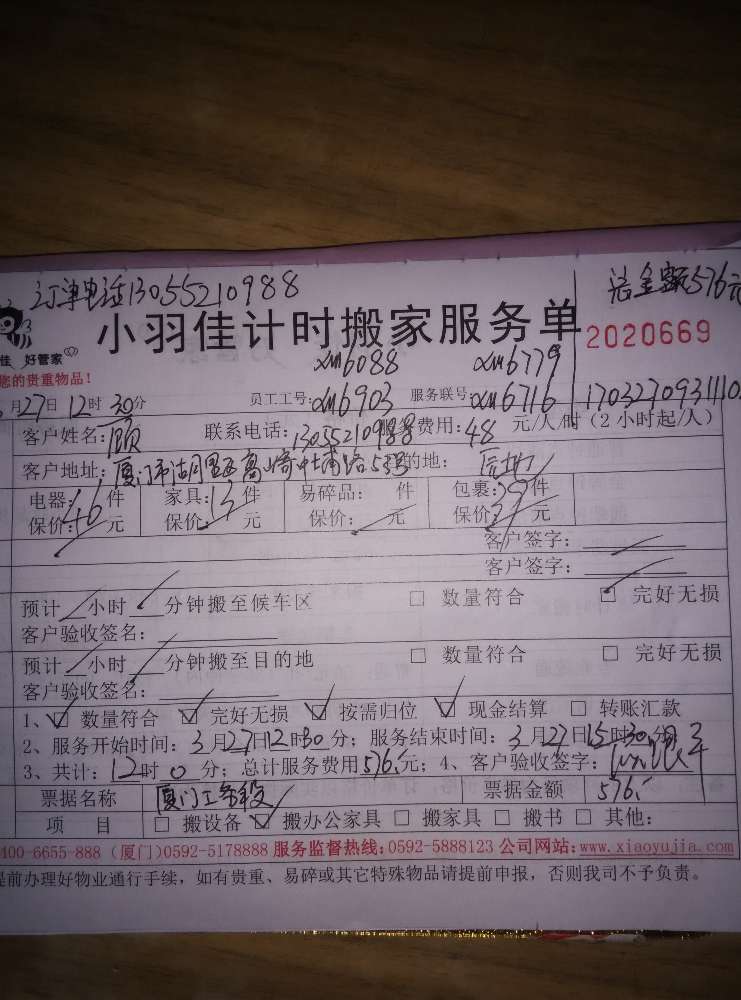 订单电话13055210988 总金额576元
小羽佳计时搬家服务单 2020669
佳 好管家
您的贵重物品!
xm6088 xm6779
月27日12时30分 员工工号:xm6903 服务联号:xm6716 1703270931110
客户姓名:顾 联系电话:13055210988 费用:48元/人/时(2小时起/人)
客户地址:厦门市湖里区高崎 埔路5号 的地:
电器: 件 家具:13件 易碎品: 件 包裹: 件
保价: 元 保价: 元 保价: 元 保价: 元
客户签字:
客户签字:
预计 小时 分钟搬至候车区 □ 数量符合 □ 完好无损
客户验收签名:
预计 小时 分钟搬至目的地 □ 数量符合 □ 完好无损
客户验收签名:
1、☑ 数量符合 ☑ 完好无损 ☑ 按需归位 ☑ 现金结算 □ 转账汇款
2、服务开始时间:3月27日12时30分;服务结束时间:3月27日15时30分
3、共计:12时0分;总计服务费用576元;4、客户验收签字:
票据名称 厦门工务段 票据金额 576.-
项 目 □ 搬设备 ☑ 搬办公家具 □ 搬家具 □ 搬书 □ 其他:
400-6655-888 (厦门)0592-5178888 服务监督热线:0592-5888123 公司网站:www.xiaoyujia.com
提前办理好物业通行手续,如有贵重、易碎或其它特殊物品请提前申报,否则我司不予负责。